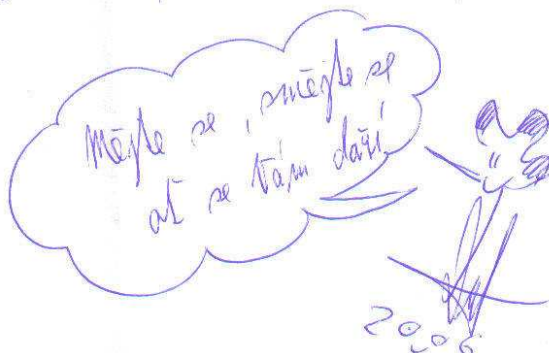 Mějte se, smějte se
ať se Vám daří!
2006